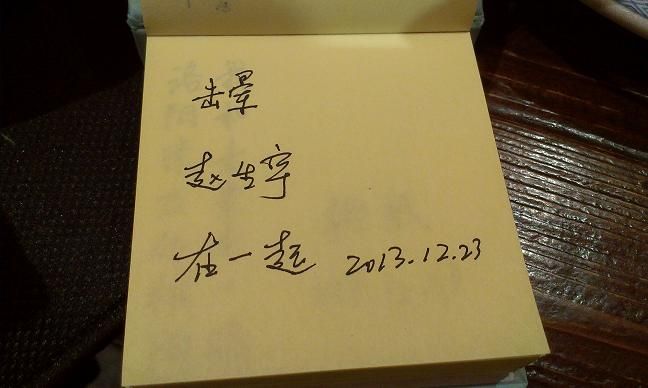 击晕
赵生宇
在一起 2013.12.23